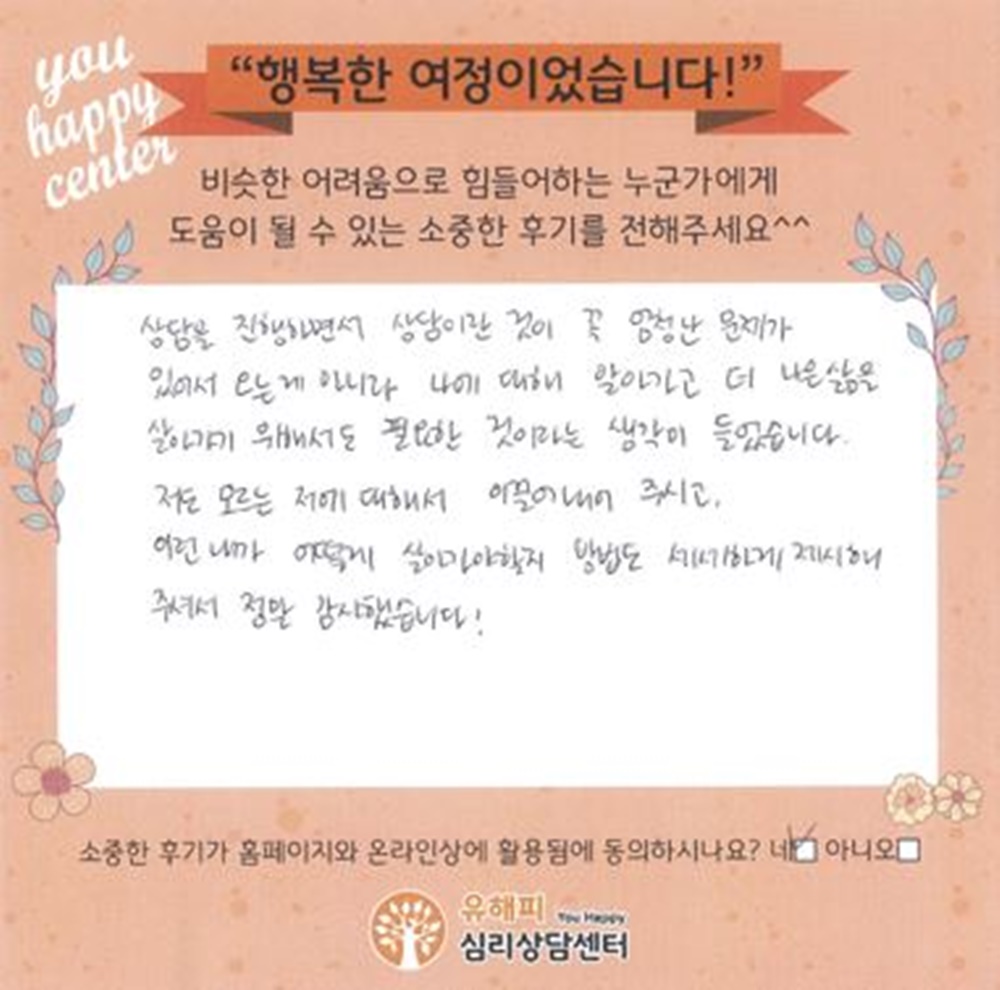 you
happy
center
“행복한 여정이었습니다!”
비슷한 어려움으로 힘들어하는 누군가에게
도움이 될 수 있는 소중한 후기를 전해주세요^^
상담을 진행하면서 상담이란 것이 꼭 엄청난 문제가
있어서 오는게 아니라 나에 대해 알아가고 더 나은 삶을
살아가기 위해서도 필요한 것이라는 생각이 들었습니다.
저도 모르는 저에 대해서 이끌어내어 주시고,
이런 내가 어떻게 살아가야할지 방법도 세세하게 제시해
주셔서 정말 감사했습니다!
소중한 후기가 홈페이지와 온라인상에 활용됨에 동의하시나요? 네 아니오
유해피 You Happy
심리상담센터